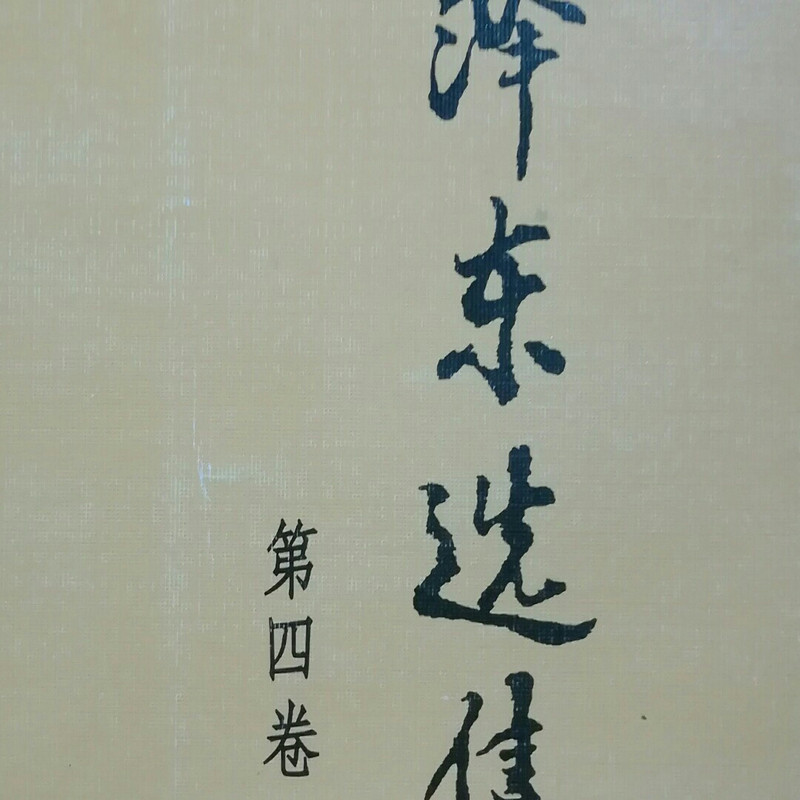 泽东选集
第四卷